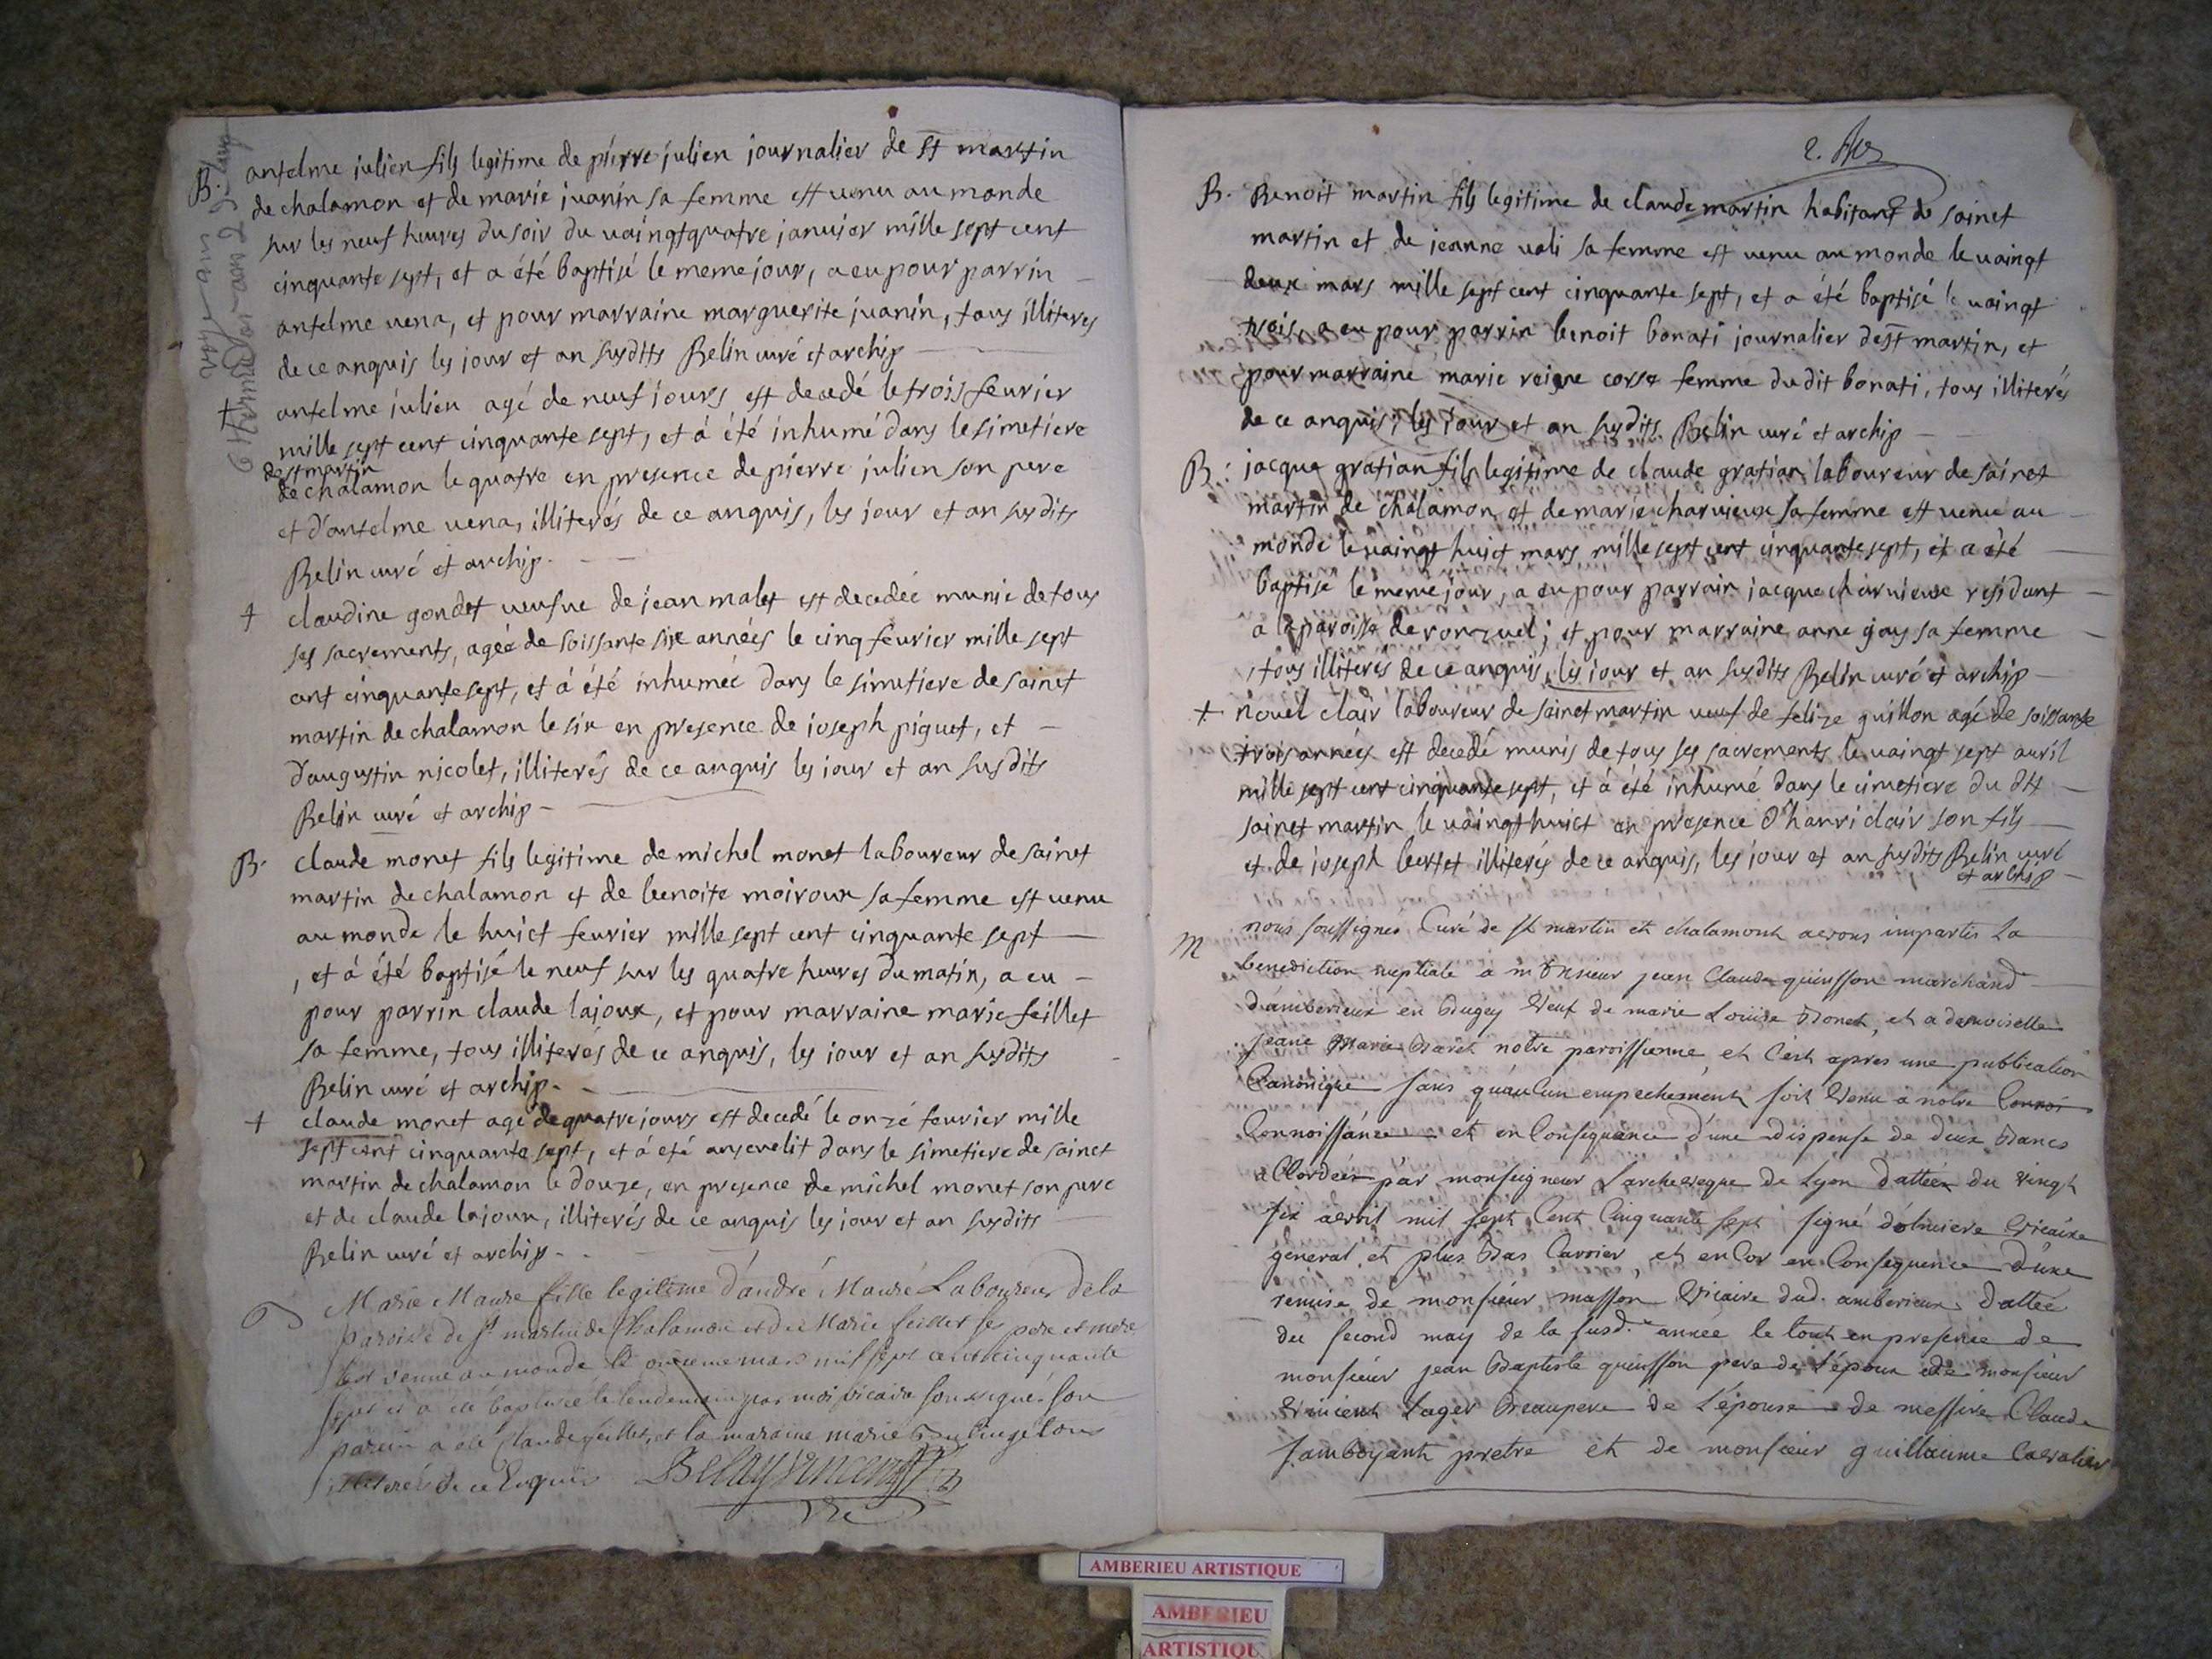 B. antelme julien fils legitime de pierre julien journalier de st martin
de chalamon et de marie juanin sa femme est venu au monde
sur les neuf heures du soir du vaingtquatre janvier mille sept cent
cinquante sept, et a été baptisé le meme jour, a eu pour parrin
antelme vena, et pour marraine marguerite juanin, tous illiteres
de ce anquis les jour et an susdits Belin curé et archip
+ antelme julien agé de neuf jours est decedé le trois feurier
mille sept cent cinquante sept, et á été inhumé dans le simetiere
de st martin
de chalamon le quatre en presence de pierre julien son pere
et d'antelme vena, illiterés de ce anquis, les jour et an susdits
Belin curé et archip.
+ claudine gondet veufue de jean malet est decedée munie de tous
ses sacrements, agée de soissante six années le cinq feurier mille sept
cent cinquante sept, et á été inhumée dans le simetiere de sainct
martin de chalamon le six en presence de joseph piguet, et
d'augustin nicolet, illiterés de ce anquis les jour et an susdits
Belin curé et archip
B. claude monet fils legitime de michel monet laboureur de sainct
martin de chalamon et de benoite moiroux sa femme est venu
au monde le huict feurier mille sept cent cinquante sept
, et á été baptisé le neuf sur les quatre heures du matin, a eu
pour parrin claude lajoux, et pour marraine marie feillet
sa femme, tous illiterés de ce anquis, les jour et an susdits
Belin curé et archip.
+ claude monet agé de quatre jours est decedé le onze feurier mille
sept cent cinquante sept, et á été ansevelit dans le simetiere de sainct
martin de chalamon le douze, en presence de michel monet son pere
et de claude lajoux, illiterés de ce anquis les jour et an susdits
Belin curé et archip.
Marie Maure fille legitime d'andré Maure Laboureur de la
paroisse de st martin de Chalamon et de Marie feillet ses pere et mere
est venue au monde le onzieme mars mil sept cent cinquante
sept et a été baptisée le lendemain par moi vicaire soussigné son
parein a été Claude feillet, et la maraine marie tous
illiterés de ce Enquis Belay vincent
2.
B. Benoit martin fils legitime de claude martin habitant de sainct
martin et de jeanne vali sa femme est venu au monde le vaingt
deux mars mille sept cent cinquante sept, et a été baptisé le vaingt
trois, a eu pour parrin benoit bonati journalier de st martin, et
pour marraine marie reigne corse femme dudit bonati, tous illiterés
de ce anquis, les jour et an susdits. Belin curé et archip
B. jacque gratian fils legitime de claude gratian laboureur de sainct
martin de chalamon et de marie charvieux sa femme est venu au
monde le vaingt huict mars mille sept cent cinquante sept, et a été
baptisé le meme jour, a eu pour parrain jacque charvieux residant
a la paroisse de ronzuel; et pour marraine anne gay sa femme
, tous illiterés de ce anquis, les jour et an susdits Belin curé et archip
+ nouel clair laboureur de sainct martin veuf de felize guillon agé de soissante
trois années est decedé munis de tous ses sacrements le vaingt sept auril
mille sept cent cinquante sept, et á été inhumé dans le cimetiere du dit
sainct martin le vaingt huict en presence d'hanri clair son fils
et de joseph bertet illiterés de ce anquis, les jour et an susdits Belin curé
et archip
nous soussignés Curé de st martin et chalamont avons impartis La
M benediction nuptiale a monsieur jean Claude quinsson marchand
d'amberieux en Bugey Veuf de marie Louise Bonet, et a demoiselle
jeane Marie Baret notre paroissienne et c'est apres une publication
Canonique sans qu'aucun empechement soit Venu a notre Connoi
Connoissance et en Consequence d'une dispense de deux Bancs
accordéee par monseigneur L'archeveque de Lyon dattéee du vingt
six avril mil sept Cent Cinquante sept signé d'olmiere Vicaire
general, et plus Bas Carrier, et encor en Consequence d'une
remise de monsieur masson Vicaire dud. amberieux dattée
du second may de la susd.e année le tout en presence de
monsieur jean Baptiste quinsson pere de l'epoux de monsieur
Vincent Lager Beaupere de L'épouse de messire Claude
jamboyant pretre et de monsieur guillaume Cavalier
AMBERIEU ARTISTIQUE
AMBERIEU
ARTISTIQU